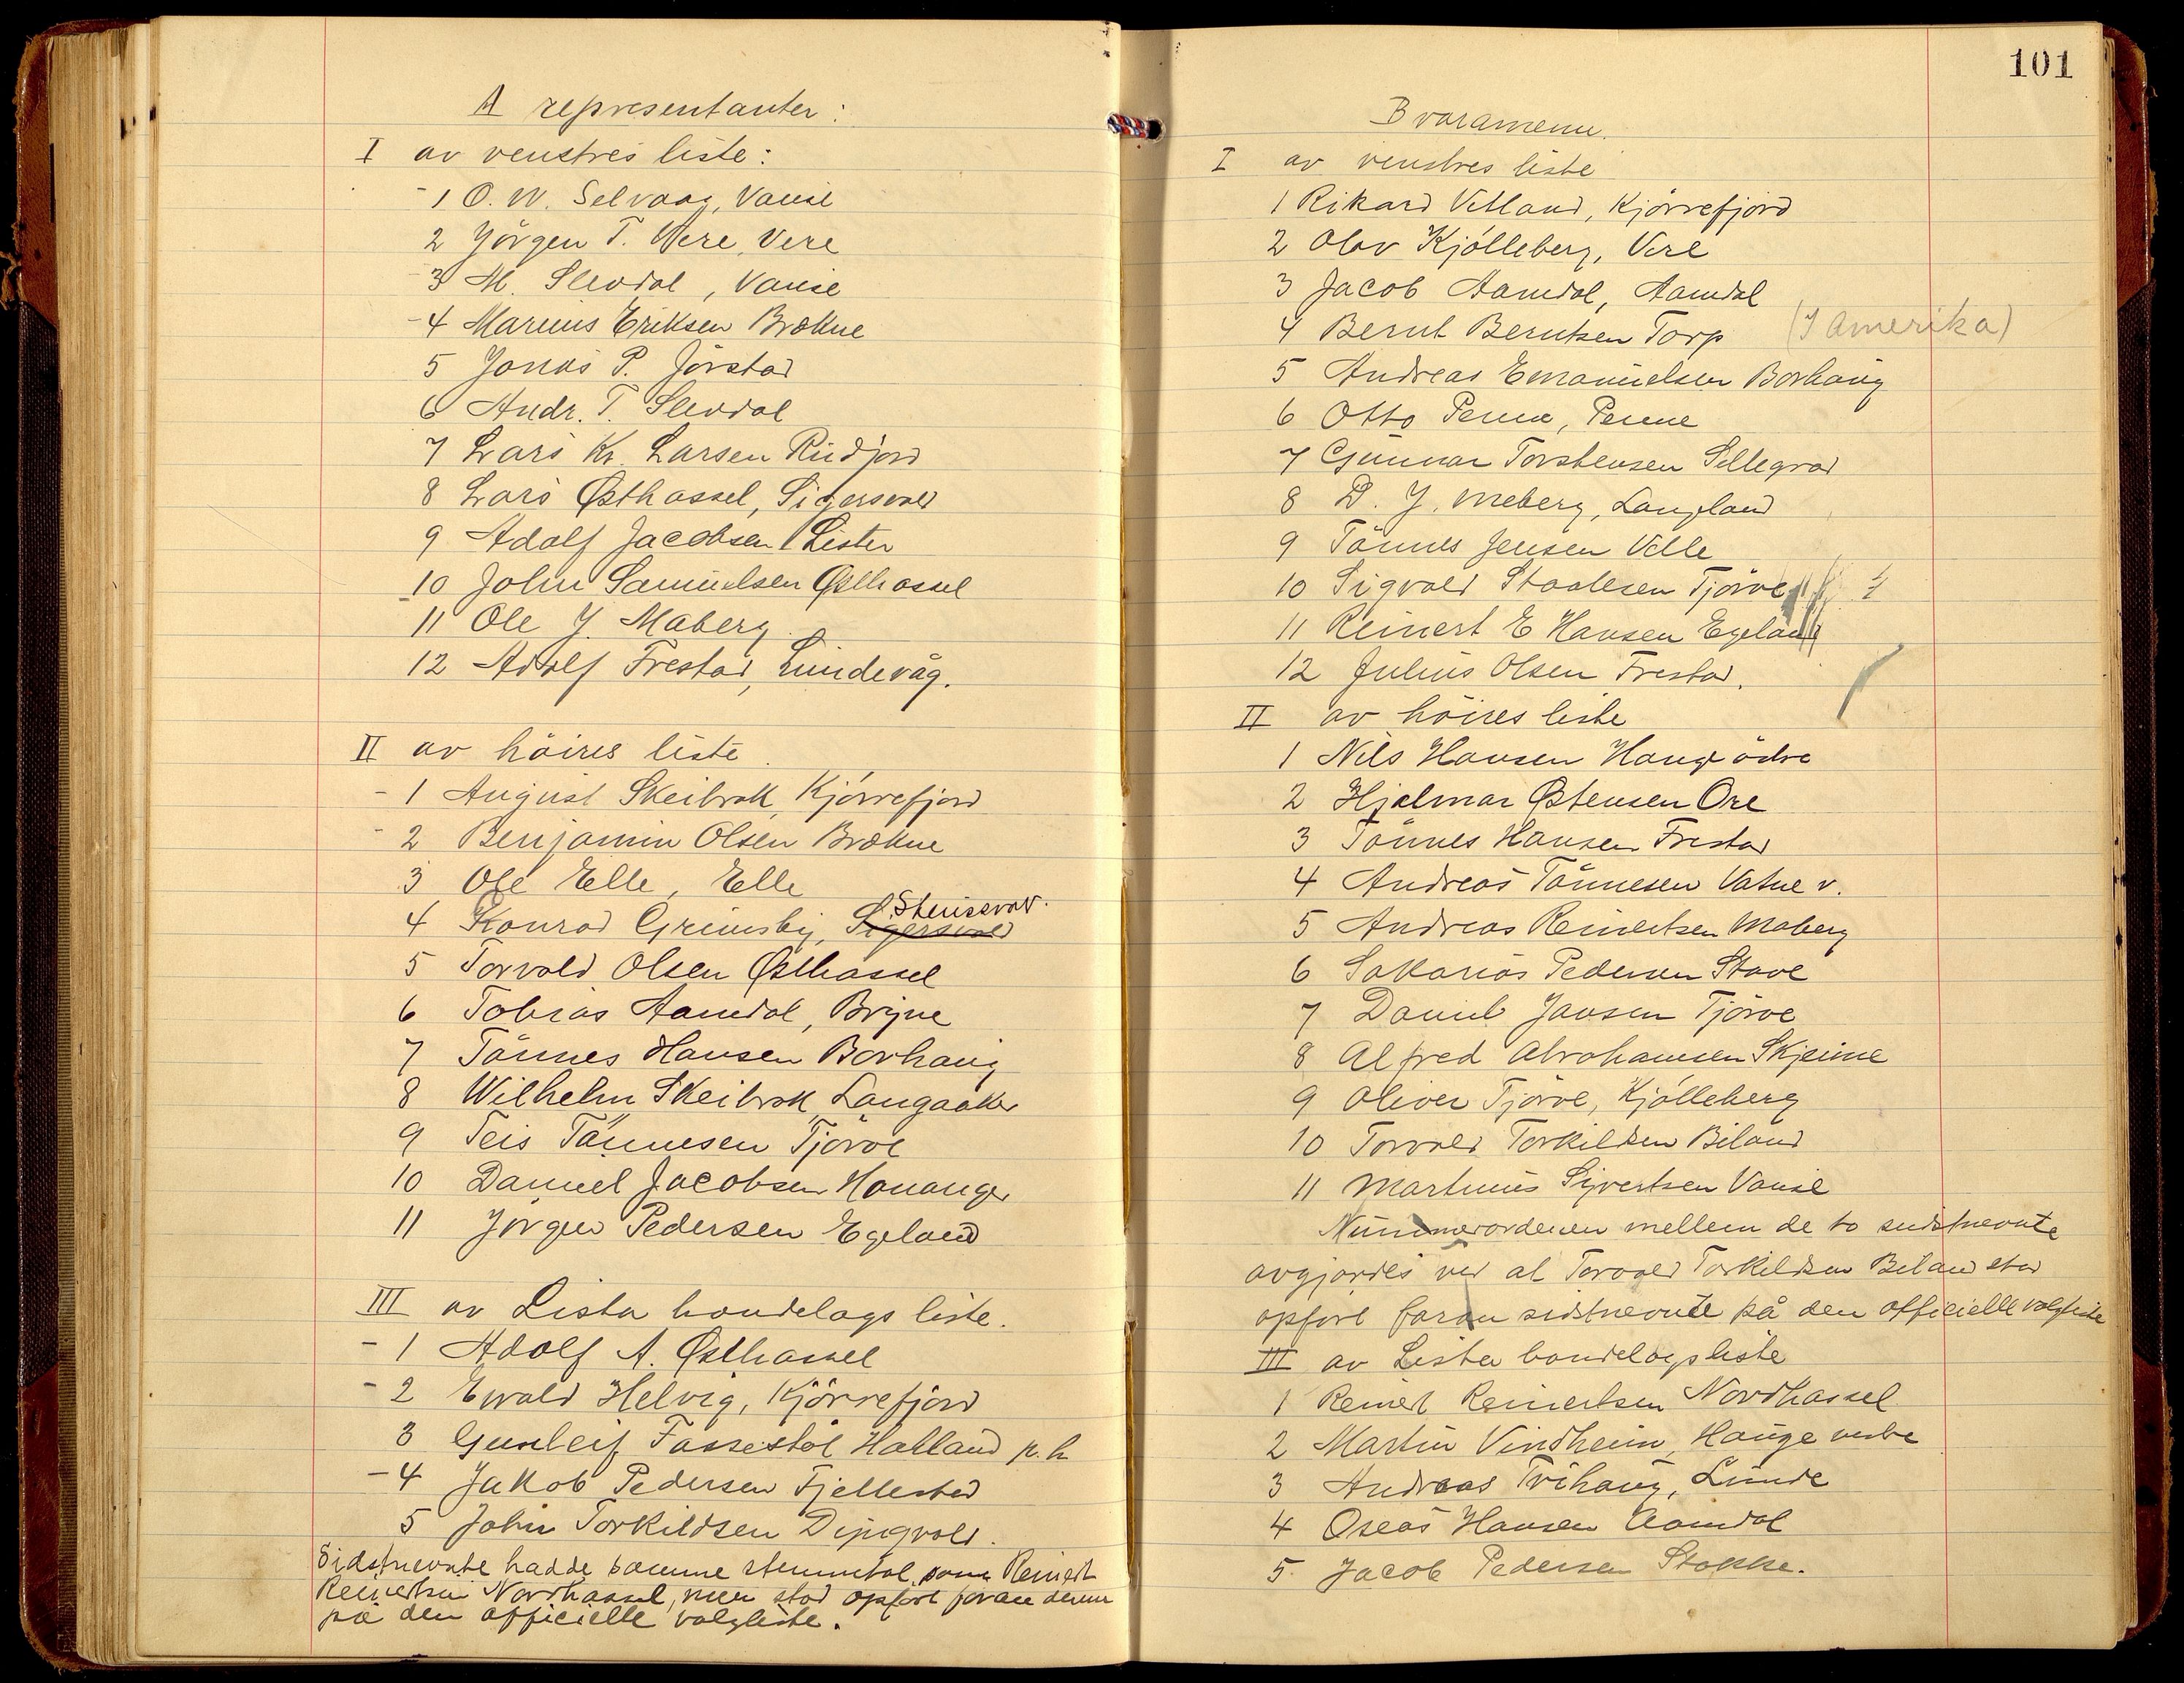 A representanter:
I av venstres liste:
- 1 O. W. Selvaag, Vanse
2 Jörgen T. Vere, Vere
- 3 M. Slevdal, Vanse
- 4 Marius Eriksen Brækne
5 Jonas P. Jörstad
6 Andr. T. Slevdal
7 Lars Kr. Larsen Rudjord
8 Lars Østhassel, Sigersvold
9 Adolf Jacobsen Lister
10 John Samuelsen Østhassel
11 Ole J. Maberg
12 Adolf Frestad, Lundevåg.
II av höires liste.
- 1 August Skeibrok, Kjörrefjord
- 2 Benjamin Olsen Brækne
3 Ole Elle, Elle
4 Konrad Grimsby, Sigersvold Steinsvav.
5 Torvald Olsen Østhassel
6 Tobias Aamdal, Bryne
7 Tönnes Hansen Borhaug
8 Wilhelm Skeibrok, Langaaker
9 Teis Tönnesen Tjörve
10 Daniel Jacobsen Hananger
11 Jörgen Pedersen Egeland
III av Lista bondelags liste.
- 1 Adolf A. Østhassel
- 2 Ewald Helvig, Kjörrefjord
3 Gunleif Fassestöl Halland p. h
- 4 Jakob Pedersen Fjellestad
5 John Torkildsen Dyngvold.
Sidstnevnte hadde samme stemmetal som Reinert
Reinertsen Nordhassel, men stod opfört foran denne
på den officielle valgliste.
101
B varamenn.
I av venstres liste
1 Rikard Vetland, Kjörrefjord
2 Olav Kjölleberg, Vere
3 Jacob Aamdal, Aamdal
4 Bernt Berntsen Torp (I Amerika)
5 Andreas Emanuelsen Borhaug
6 Otto Penne, Penne
7 Gunnar Torstensen Sellegrod
8 D. J. Meberg, Langeland
9 Tönnes Jensen Velle
10 Sigvald Staalesen Tjörve
11 Reinert E Hansen Egeland
12 Julius Olsen Frestad.
II av höires liste
1 Nils Hansen Hauge östre
2 Hjalmar Østensen Ore
3 Tönnes Hansen Frestad
4 Andreas Tönnesen Vatne v.
5 Andreas Reinertsen Maberg
6 Sakarias Pedersen Stave
7 Daniel Jansen Tjörve
8 Alfred Abrahamsen Skjeime
9 Oliver Tjörve, Kjölleberg
10 Torvald Torkildsen Biland
11 Martinius Sivertsen Vanse
Nummerordenen mellem de to sidstnevnte
avgjordes ved at Torvald Torkildsen Biland stod
opfört foran sidstnevnte på den officielle valgliste
III av Lista bondelagsliste
1 Reinert Reinertsen Nordhassel
2 Martin Vindheim, Hauge vestre
3 Andreas Trihaug, Lunde
4 Oseas Hansen Aamdal
5. Jacob Pedersen Stokke.